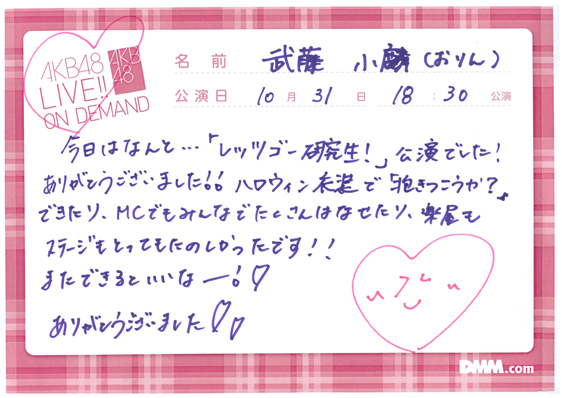 AKB48
LIVE!!
ON DEMAND
AKB
48
名前 武藤 小麟(おりん)
公演日 10月31日 18:30 公演
今日はなんと…「レッツゴー研究生!」公演でした!
ありがとうございました!! ハロウィン衣装で
できたり、MCでもみんなでたくさんはなせたり、楽屋も
ステージもとってもたのしかったです!!
またできるといいなー!♡
ありがとうございました♡♡
DMM.com